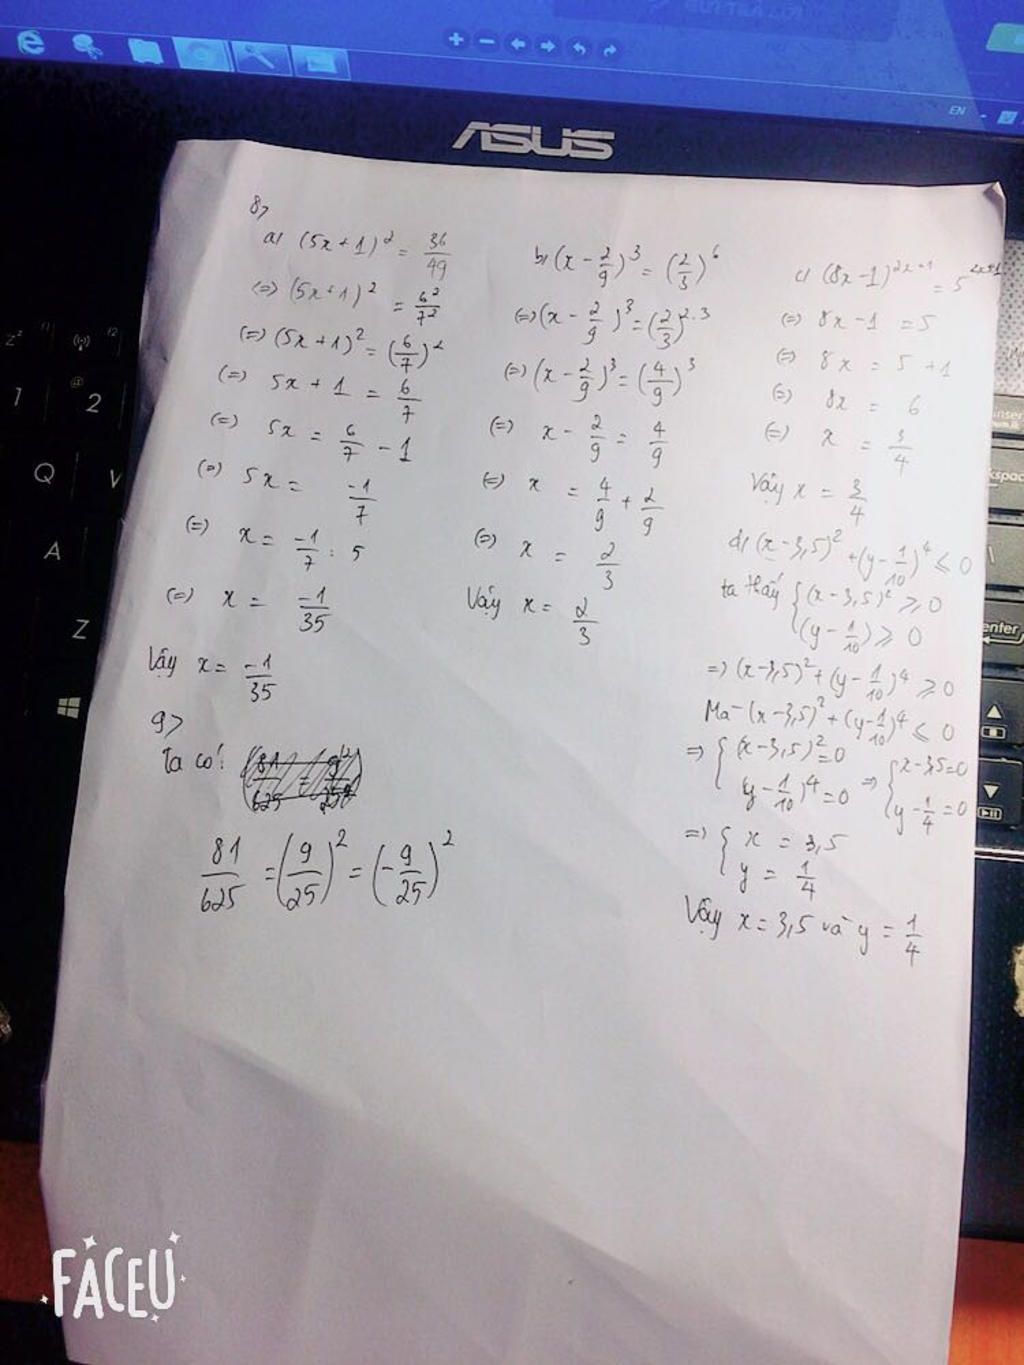 ASUS
EN
8>
a) (5x+1)² = 36/49
(=) (5x+1)² = 6²/7²
(=) (5x+1)² = (6/7)²
(=) 5x + 1 = 6/7
(=) 5x = 6/7 - 1
(=) 5x = -1/7
(=) x = -1/7 : 5
(=) x = -1/35
Vậy x = -1/35
b) (x - 2/9)³ = (2/3)⁶
(=) (x - 2/9)³ = (2/3)²·³
(=) (x - 2/9)³ = (4/9)³
(=) x - 2/9 = 4/9
(=) x = 4/9 + 2/9
(=) x = 2/3
Vậy x = 2/3
c) (8x-1)²ˣ⁺¹ = 5²ˣ⁺¹
(=) 8x - 1 = 5
(=) 8x = 5 + 1
(=) 8x = 6
(=) x = 3/4
Vậy x = 3/4
d) (x-3,5)² + (y - 1/10)⁴ ≤ 0
ta thấy { (x-3,5)² ≥ 0
(y - 1/10) ≥ 0
=> (x-3,5)² + (y - 1/10)⁴ ≥ 0
Mà (x-3,5)² + (y - 1/10)⁴ ≤ 0
=> { (x-3,5)² = 0
(y - 1/10)⁴ = 0
=> { x - 3,5 = 0
y - 1/4 = 0
=> { x = 3,5
y = 1/4
Vậy x = 3,5 và y = 1/4
9>
Ta có:
81/625 = (9/25)² = (-9/25)²
1
2
Q
A
Z
enter
FACEU